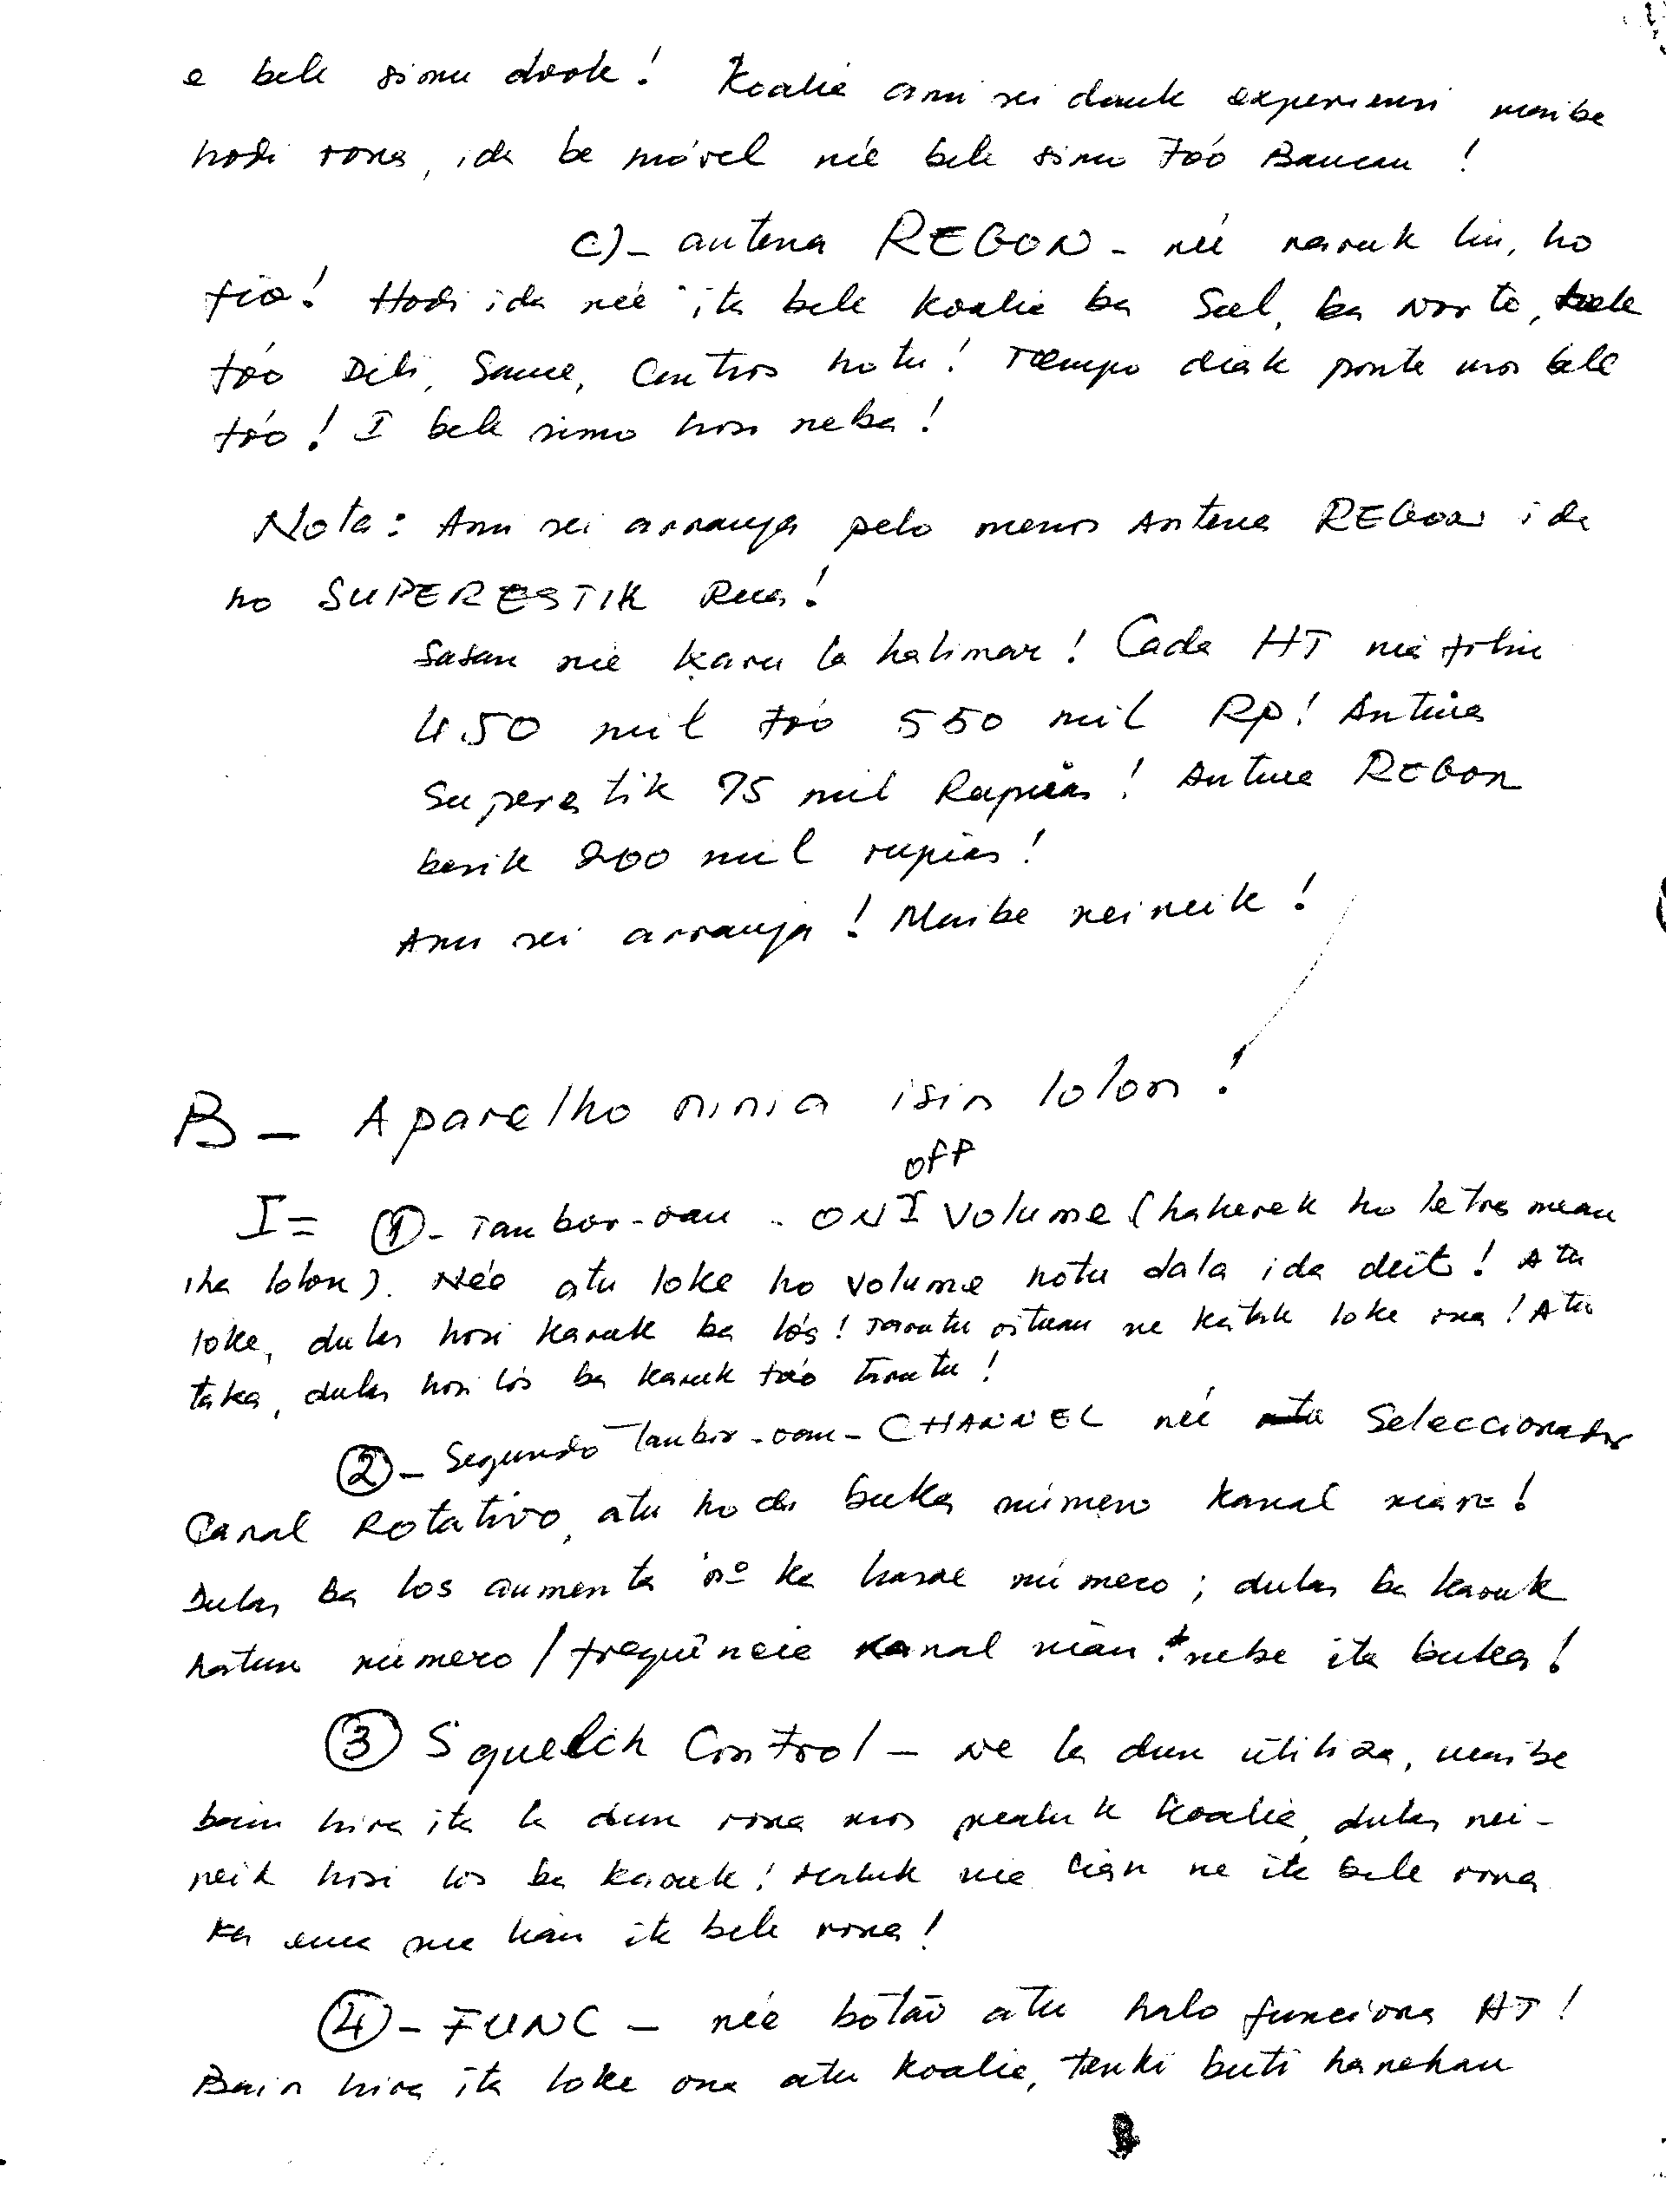 e bele simu dook! Koalia ami sei dauk experiensi maibe
hodi rona, ida be móvel né'e bele simu tó'o Baucau!
C)- antena REGON - né'e naruk liu, ho
fio! Hodi ida né'e ita bele koalia ba Sul, ba Norte, bele
tó'o Dili, Same, Centros hotu! Tempo diak ponta mos bele
tó'o! I bele simo hosi neba!
Nota: Ami sei arranja pelo menos Antena REGON ida
ho SUPERESTIK Rua!
Sasan né'e karu la halimar! Cada HT né'e folin
450 mil tó'o 550 mil Rp! Antena
Superestik 75 mil Rupias! Antena REGON
besik 200 mil rupias!
Ami sei arranja! Maibe neineik!
B - Aparelho ninia isin lolon!
off
I = ① - Tanbor-oan - ON I Volume (hakerek ho letra mean
iha lolon). Né'e atu loke ho volume hotu dala ida deit! Atu
loke, dulas hosi karuk ba lós! Tarutu oituan ne katak loke ona! Atu
taka, dulas hosi lós ba karuk tó'o tarutu!
② - Segundo Tanbor-oan - CHANNEL né'e Seleccionador
Canal Rotativo, atu hodi buka número kanal nian!
Dulas ba los aumenta nº ka hasae número; dulas ba karuk
hatun número / frequência kanal nian nebe ita buka!
③ Squelch Control - Ne la dun utiliza, maibe
bain hira ita la dun rona mos maluk koalia, dulas nei-
neik hosi los ba karuk! Maluk nia lian ne ita bele rona
ka ema nia lian ita bele rona!
④ - FUNC - né'e botão atu halo funciona HT!
Bain hira ita loke ona atu koalia, tenki buti hanehan